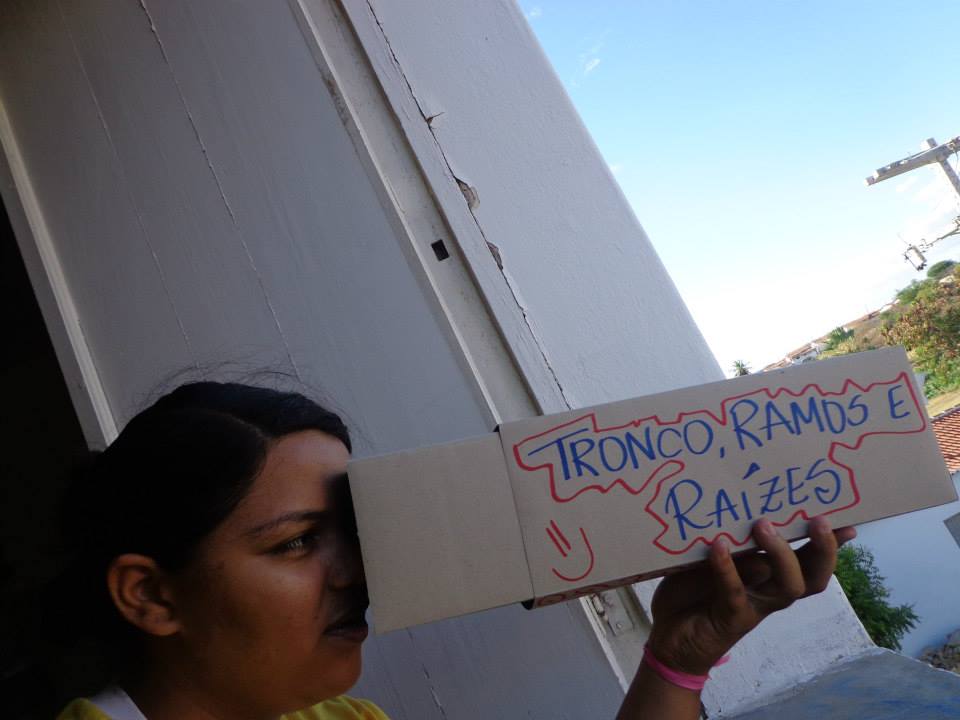 TRONCO, RAMOS E
RAÍZES